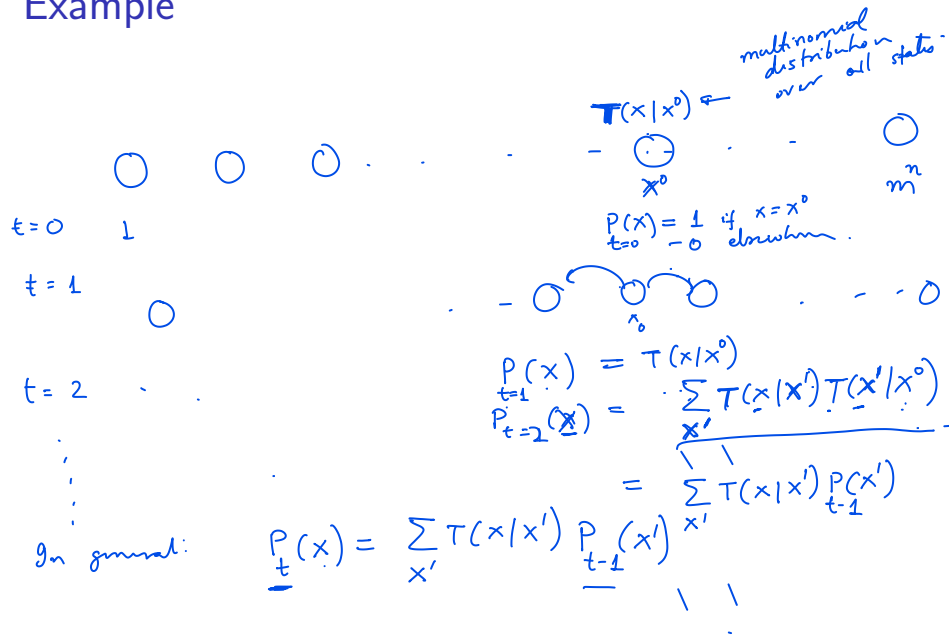 Example
multinomial
distribution
over all states
T(x|x⁰) ←
x⁰
mⁿ
t=0 1
P(x) = 1 if x=x⁰
t=0 - 0 elsewhere.
t = 1
x₀
P(x) = T(x|x⁰)
t=1
t = 2
P_{t=2}(x) = ∑_{x'} T(x|x') T(x'|x⁰)
= ∑_{x'} T(x|x') P_{t-1}(x')
In general: P_t(x) = ∑_{x'} T(x|x') P_{t-1}(x')